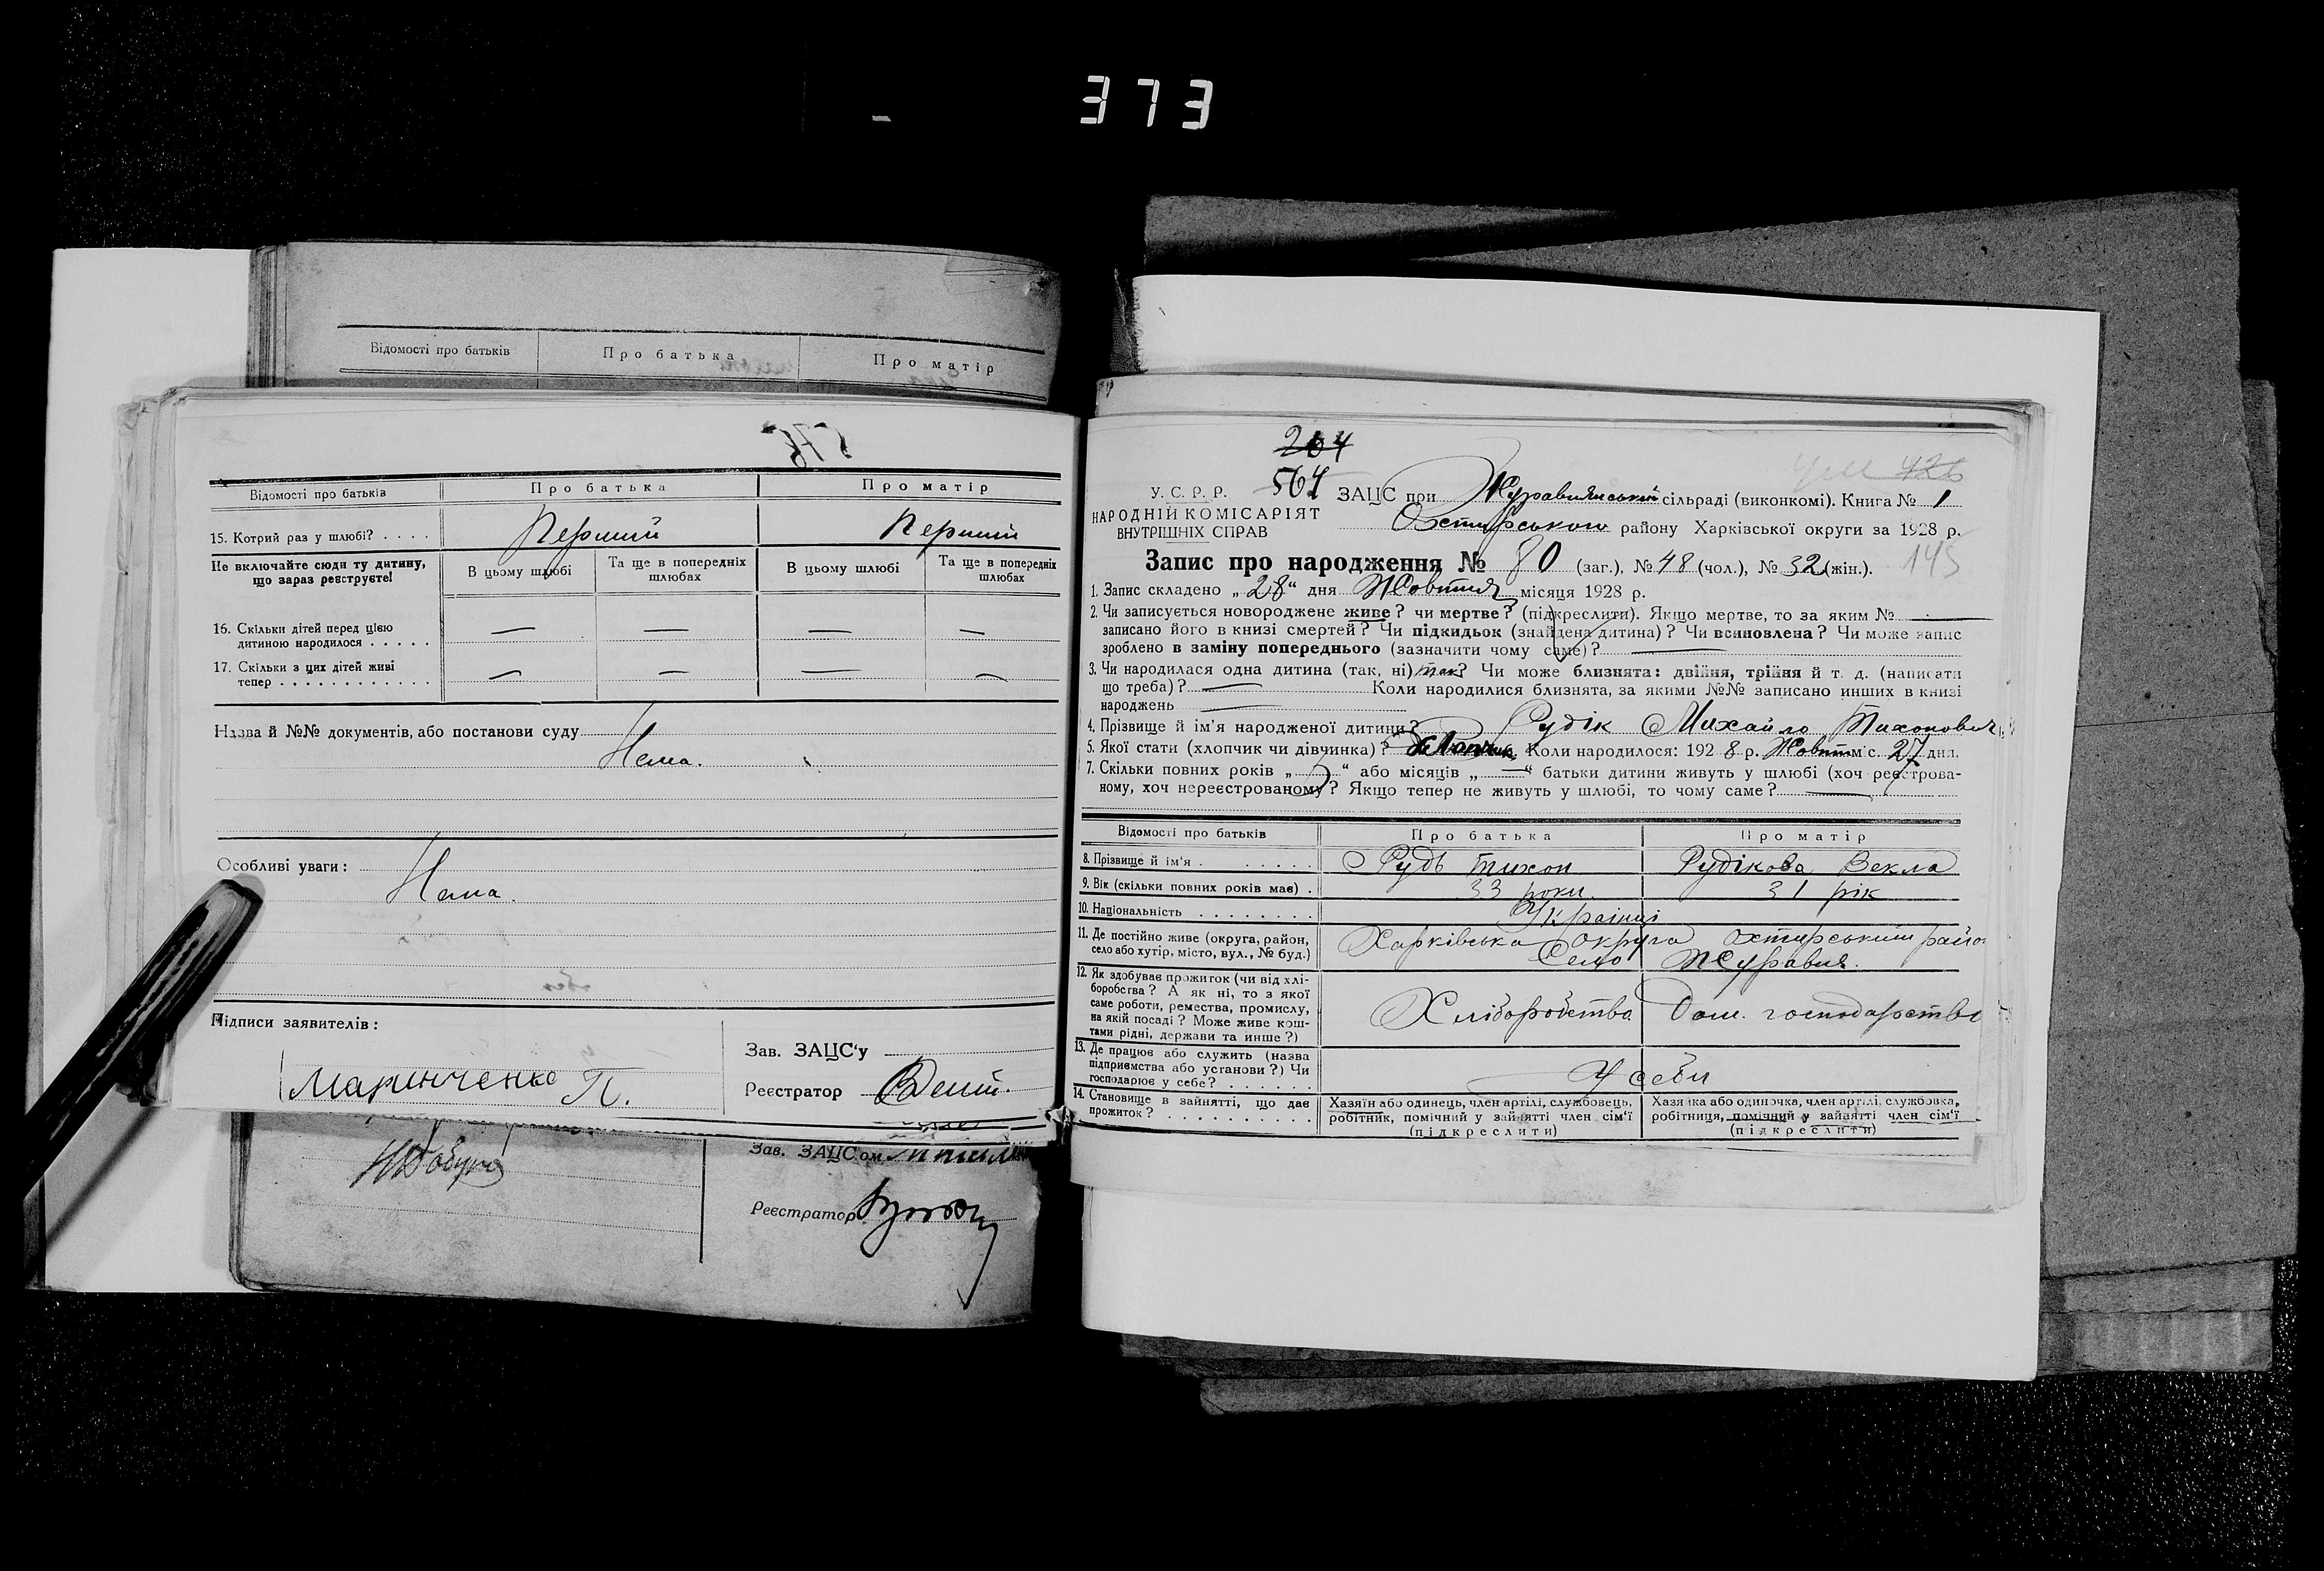 373
Відомості про батьків Про батька Про матір
Відомості про батьків Про батька Про матір
15. Котрий раз у шлюбі? . . . . Перший Перший
Не включайте сюди ту дитину, що зараз реєструєте!
В цьому шлюбі Та ще в попередніх шлюбах В цьому шлюбі Та ще в попередніх шлюбах
16. Скільки дітей перед цією
дитиною народилося . . . . . — — — —
17. Скільки з цих дітей живі
тепер . . . . . . . . . . . . — — — —
Назва й №№ документів, або постанови суду
Нема.
Особливі уваги:
Нема.
Підписи заявителів:
Маринченко П.
Зав. ЗАЦС'у
Реєстратор
Зав. ЗАЦСом
Реєстратор
264
564
426
У. С. Р. Р.
НАРОДНІЙ КОМІСАРІЯТ
ВНУТРІШНІХ СПРАВ
ЗАЦС при Журавнянській сільраді (виконкомі). Книга № 1
Охтирського району Харківської округи за 1928 р.
145
Запис про народження № 80 (заг.), № 48 (чол.), № 32 (жін.).
1. Запис складено „28“ дня Жовтня місяця 1928 р.
2. Чи записується новороджене живе? чи мертве? (підкреслити). Якщо мертве, то за яким № —
записано його в книзі смертей? Чи підкидьок (знайдена дитина)? Чи всиновлена? Чи може запис
зроблено в заміну попереднього (зазначити чому саме)? —
3. Чи народилася одна дитина (так, ні) так? Чи може близнята: двійня, трійня й т. д. (написати
що треба)? — Коли народилися близнята, за якими №№ записано инших в книзі
народжень —
4. Прізвище й ім'я народженої дитини? Рудік Михайло Тихонович
5. Якої статі (хлопчик чи дівчинка)? Хлопчик Коли народилося: 1928 р. Жовтн міс. 27 дня.
7. Скільки повних років „ “ або місяців „—“ батьки дитини живуть у шлюбі (хоч реєстрова-
ному, хоч нереєстрованому? Якщо тепер не живуть у шлюбі, то чому саме? —
Відомості про батьків Про батька Про матір
8. Прізвище й ім'я . . . . . . Рудь Тихон Рудікова Векла
9. Вік (скільки повних років має) . 33 роки. 31 рік
10. Національність . . . . . . . . Українці
11. Де постійно живе (округа, район,
село або хутір, місто, вул., № буд.)
Харківська округа Охтирський райо
Село Журавне.
12. Як здобуває прожиток (чи від хлі-
боробства? А як ні, то з якої
саме роботи, ремества, промислу,
на якій посаді? Може живе кош-
тами рідні, держави та инше?)
Хліборобство Дом. господарство
13. Де працює або служить (назва
підприємства або установи?) Чи
господарює у себе? . . . . . .
У себи
14. Становище в зайнятті, що дає
прожиток? . . . . . . . . . .
Хазяїн або одинець, член артілі, службовець,
робітник, помічний у зайнятті член сім'ї
(підкреслити)
Хазяйка або одиночка, член артілі, службовка,
робітниця, помічний у зайнятті член сім'ї
(підкреслити)